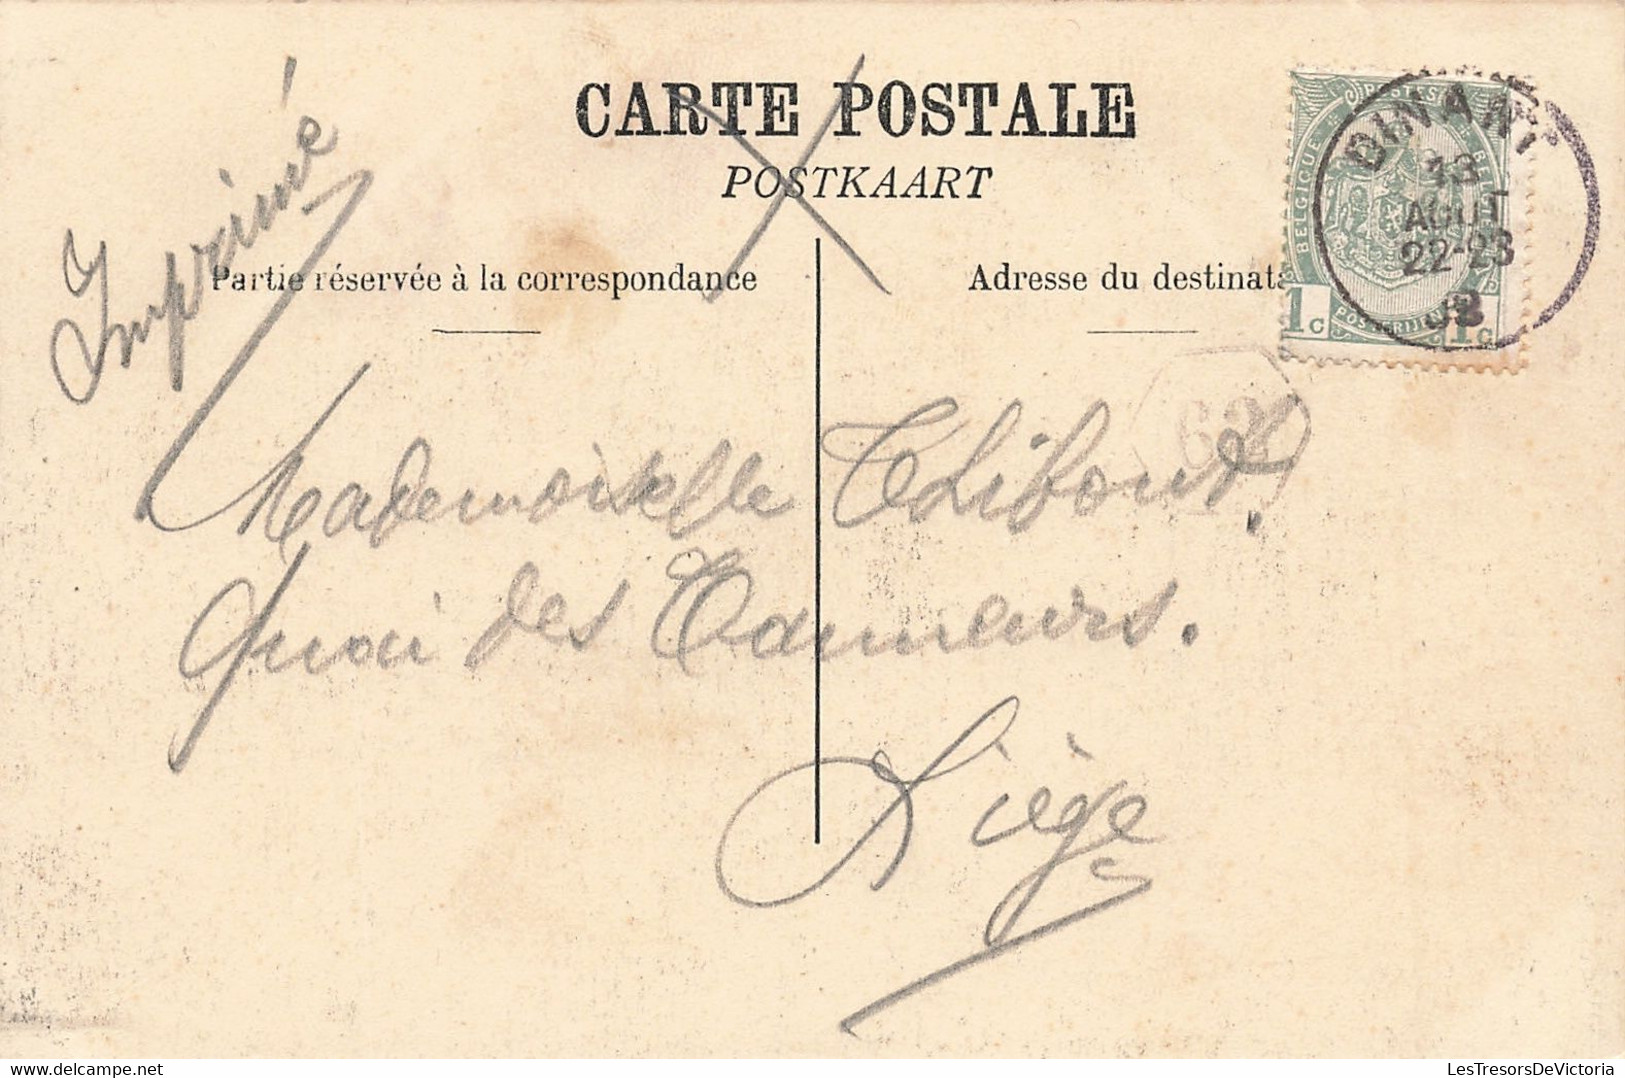 CARTE POSTALE
POSTKAART
Imprimé
Partie réservée à la correspondance
Adresse du destinata
BELGIQUE
BELGIE
POSTERIJEN
1 c
1 c
DINANT
13
AOUT
22-23
Mademoiselle Thibout.
Quai des Tanneurs.
Liège
LesTresorsDeVictoria